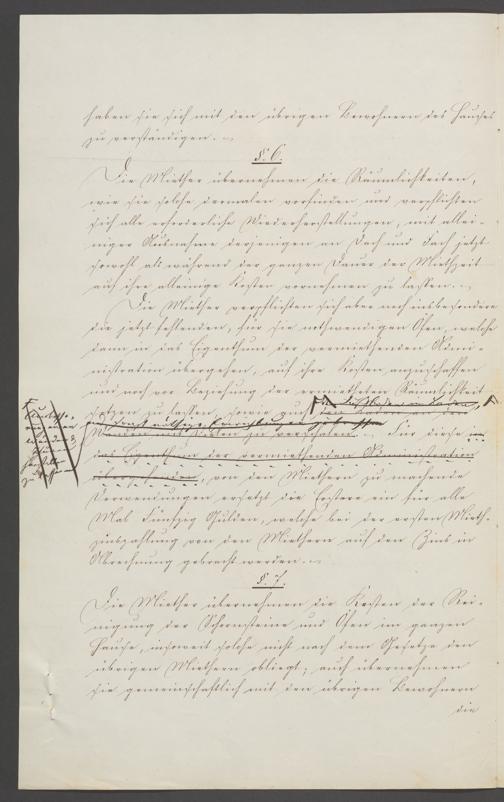 haben sie sich mit den übrigen Bewohnern des Hauses
zu verständigen.
§. 6.
Die Miether übernehmen die Räumlichkeiten,
wie sie solche dermalen vorfinden und verpflichten
sich alle erforderliche Wiederherstellungen, mit allei-
niger Ausnahme derjenigen an Dach und Fach jetzt
sowohl als während der ganzen Dauer der Miethzeit
auf ihre alleinige Kosten vornehmen zu lassen.
Die Miether verpflichten sich aber noch insbesondere
die jetzt fehlenden, für sie nothwendigen Öfen, welche
dann in das Eigenthum der vermiethenden Admi-
nistration übergehen, auf ihre Kosten anzuschaffen
und noch vor Beziehung der ermietheten Räumlichkeit
setzen zu lassen, sowie auch
zu verschalen. Für diese in
das Eigenthum der vermiethenden Administration
übergehenden, von den Miethern zu machende
Verwendungen ersetzt die Erstere ein für alle
Mal Fünfzig Gulden, welche bei der ersten Mieth-
zinszahlung von den Miethern auf den Zins in
Abrechnung gebracht werden.
§. 7.
Die Miether übernehmen die Kosten der Rei-
nigung der Schornsteine und Öfen im ganzen
Hause, insoweit solche nicht nach dem Gesetze den
übrigen Miethern obliegt; auch übernehmen
sie gemeinschaftlich mit den übrigen Bewohnern
die